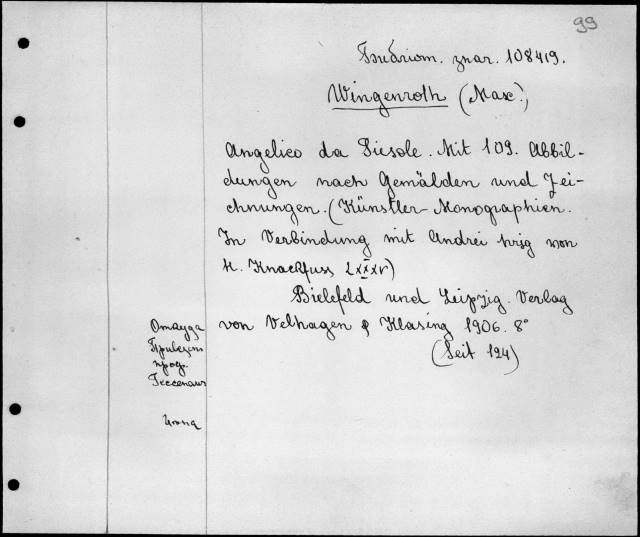 99
Библіот. знач. 108419.
Wingenroth (Max.)
Angelico da Fiesole. Mit 109. Abbil-
dungen nach Gemälden und Zei-
chnungen. (Künstler-Monographien.
In Verbindung mit Andrei hrsg von
H. Knackfuss LXXXV)
Bielefeld und Leipzig. Verlag
von Velhagen & Klasing 1906. 8°
(Seit 124)
Отъ
проф.